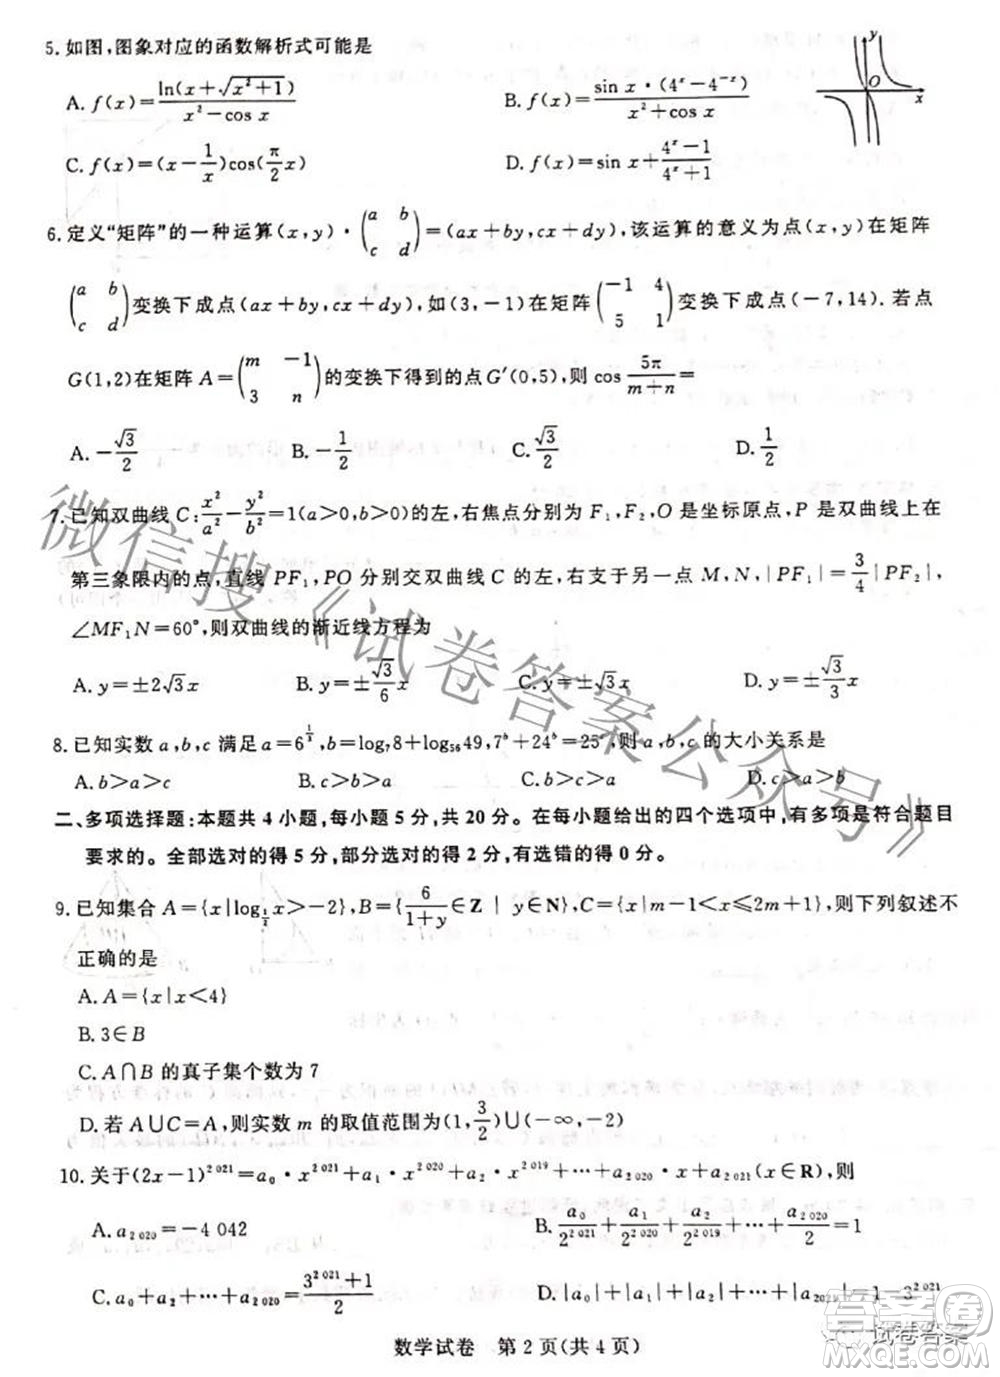 5.如图,图象对应的函数解析式可能是
A. f(x)=\frac{ln(x+\sqrt{x^2+1})}{x^2-cos x}
B. f(x)=\frac{sin x·(4^x-4^{-x})}{x^2+cos x}
y
O
x
C. f(x)=(x-\frac{1}{x})cos(\frac{π}{2}x)
D. f(x)=sin x+\frac{4^x-1}{4^x+1}
6.定义“矩阵”的一种运算(x,y)·\begin{pmatrix}a & b\\c & d\end{pmatrix}=(ax+by,cx+dy),该运算的意义为点(x,y)在矩阵
\begin{pmatrix}a & b\\c & d\end{pmatrix}变换下成点(ax+by,cx+dy),如(3,-1)在矩阵\begin{pmatrix}-1 & 4\\5 & 1\end{pmatrix}变换下成点(-7,14).若点
G(1,2)在矩阵A=\begin{pmatrix}m & -1\\3 & n\end{pmatrix}的变换下得到的点G′(0,5),则 cos\frac{5π}{m+n}=
A.-\frac{\sqrt{3}}{2} B.-\frac{1}{2} C.\frac{\sqrt{3}}{2} D.\frac{1}{2}
7.已知双曲线C:\frac{x^2}{a^2}-\frac{y^2}{b^2}=1(a>0,b>0)的左,右焦点分别为F_1,F_2,O是坐标原点,P是双曲线上在
第三象限内的点,直线PF_1,PO分别交双曲线C的左,右支于另一点M,N,|PF_1|=\frac{3}{4}|PF_2|,
∠MF_1N=60°,则双曲线的渐近线方程为
A. y=±2\sqrt{3}x B. y=±\frac{\sqrt{3}}{6}x C. y=±\sqrt{3}x D. y=±\frac{\sqrt{3}}{3}x
8.已知实数a,b,c满足a=6^{\frac{1}{3}},b=log_7 8+log_{56}49,7^b+24^b=25^c,则a,b,c的大小关系是
A. b>a>c B. b>c>a C. c>b>a D. c>a>b
二、多项选择题:本题共4小题,每小题5分,共20分。在每小题给出的四个选项中,有多项是符合题目
要求的。全部选对的得5分,部分选对的得2分,有选错的得0分。
9.已知集合A={x|log_{\frac{1}{2}}x>-2},B={\frac{6}{1+y}∈Z | y∈N},C={x|m-1<x≤2m+1},则下列叙述不
正确的是
A. A={x|x<4}
B. 3∈B
C. A∩B的真子集个数为7
D.若A∪C=A,则实数m的取值范围为(1,\frac{3}{2})∪(-∞,-2)
10.关于(2x-1)^{2021}=a_0·x^{2021}+a_1·x^{2020}+a_2·x^{2019}+…+a_{2020}·x+a_{2021}(x∈R),则
A. a_{2020}=-4 042
B. \frac{a_0}{2^{2021}}+\frac{a_1}{2^{2020}}+\frac{a_2}{2^{2019}}+…+\frac{a_{2020}}{2}=1
C. a_0+a_2+…+a_{2020}=\frac{3^{2021}+1}{2}
D. |a_0|+|a_1|+|a_2|+…+|a_{2021}|=1-3^{2021}
数学试卷 第2页(共4页)
微信搜《试卷答案公众号》
试卷答案